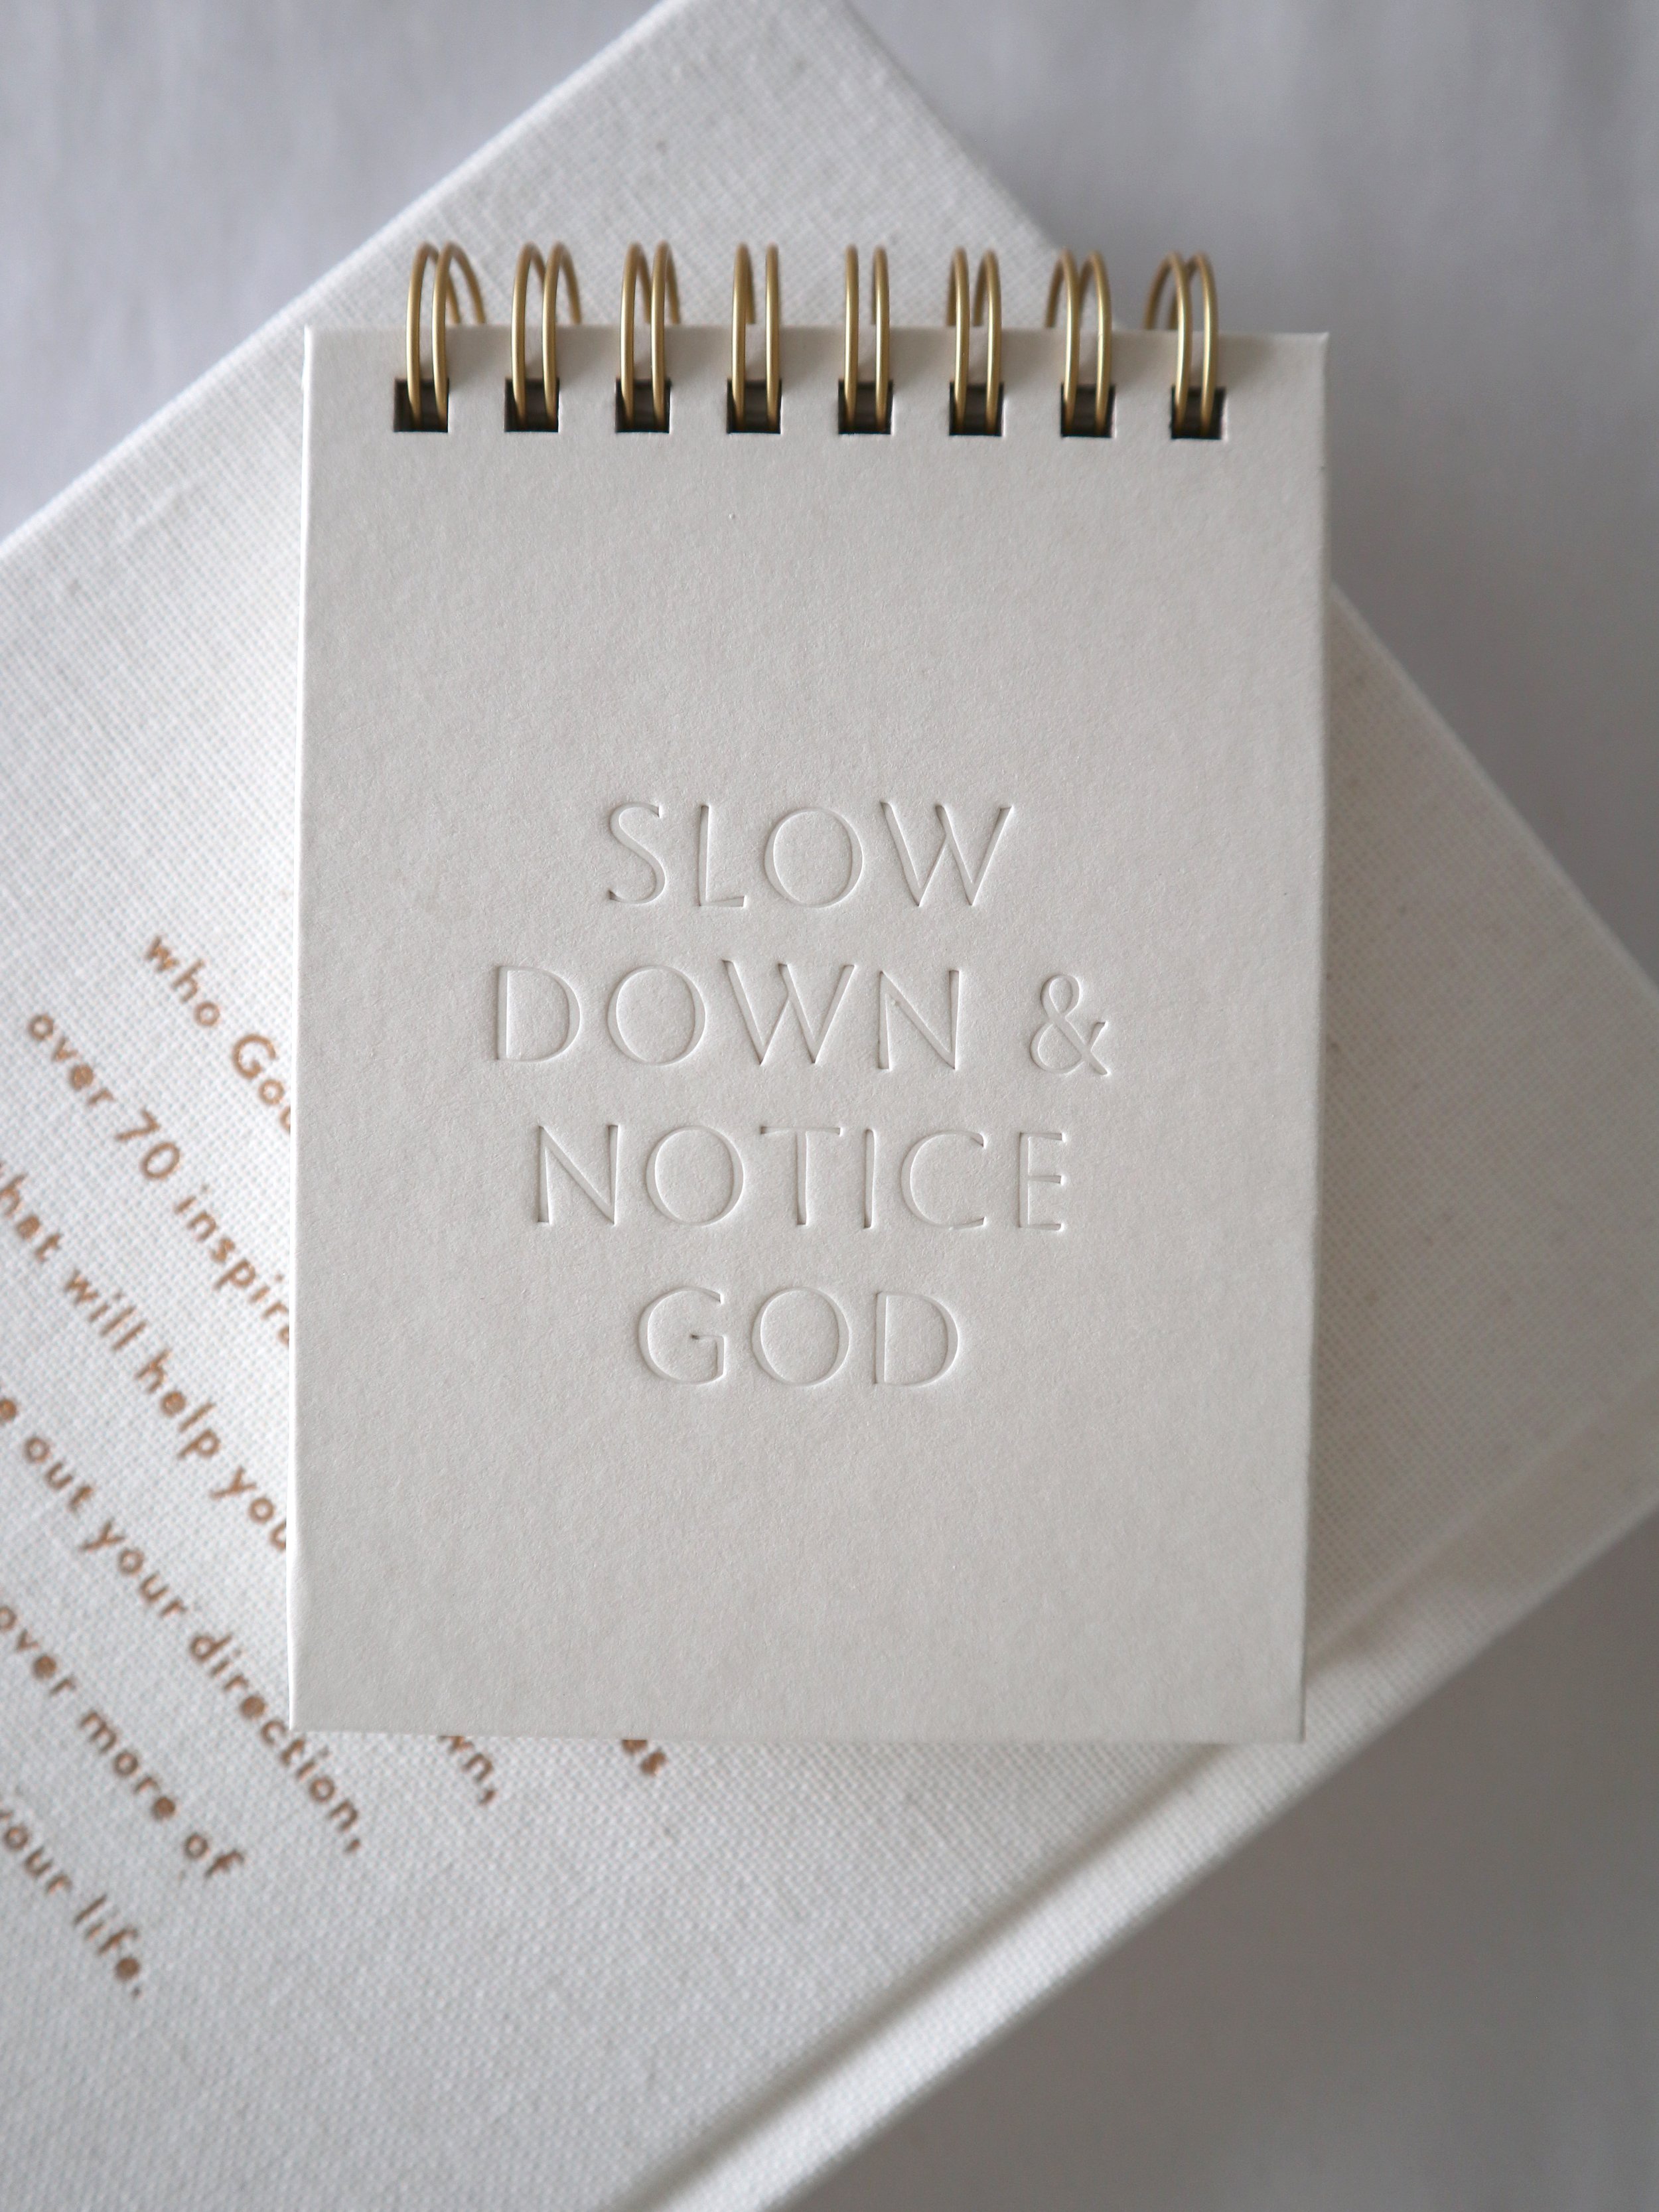 SLOW
DOWN &
NOTICE
GOD
who
over 70
that will help you
out your direction,
more of
your life.